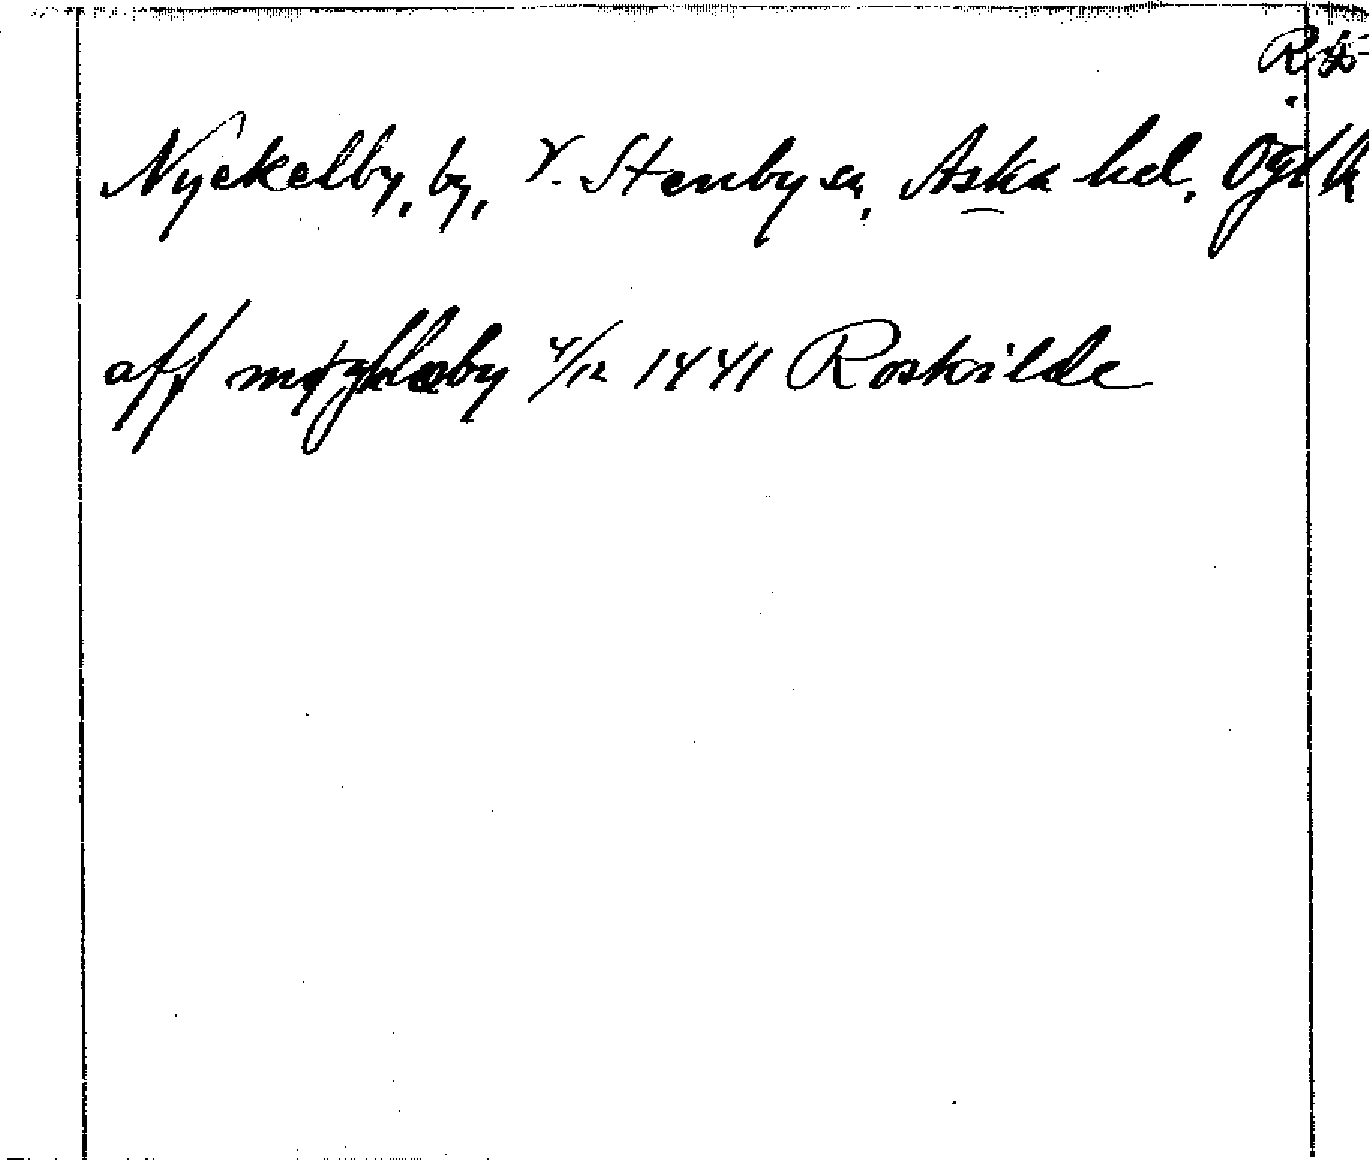 Nyckelby, by, V. Stenby sn, Aska hd, Ögl
aff møghlæby 4/12 1441 Roskilde